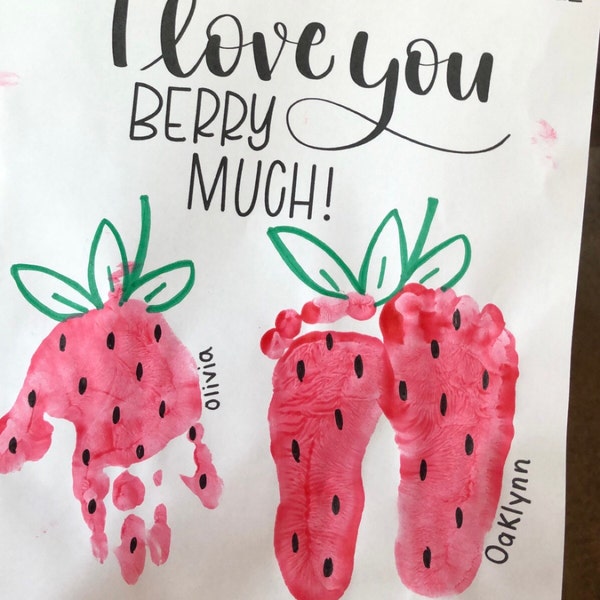 I love you
BERRY
MUCH!
olivia
Oaklynn